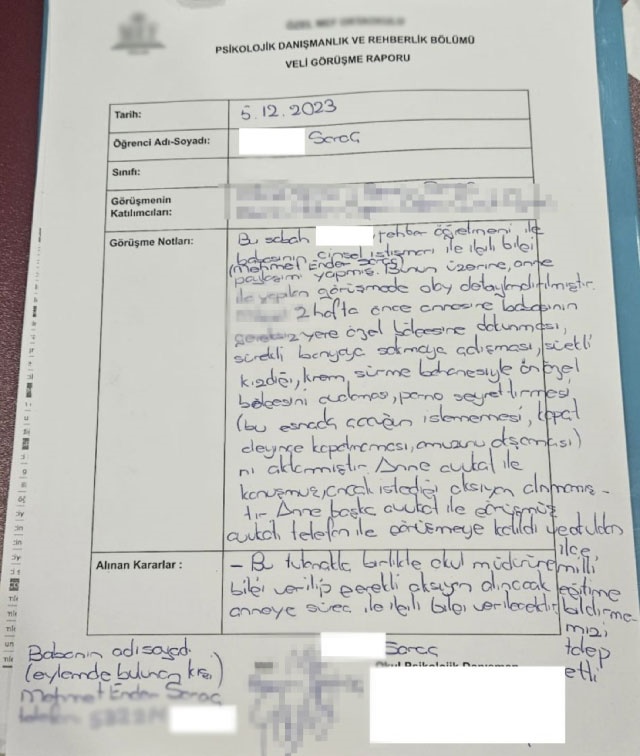 PSİKOLOJİK DANIŞMANLIK VE REHBERLİK BÖLÜMÜ
VELİ GÖRÜŞME RAPORU
Tarih: 5.12.2023
Öğrenci Adı-Soyadı: Saraç
Sınıfı:
Görüşmenin
Katılımcıları:
Görüşme Notları:
Bu sabah rehber öğretmeni ile
babasının cinsel istismarı ile ilgili bilgi
(Mehmet Ender Saraç)
paylaşımı yapmış. Bunun üzerine, anne
ile yapılan görüşmede olay detaylandırılmıştır.
2 hafta önce annesine babasının
gereksiz yere özel bölgesine dokunması,
sürekli banyaya sokmaya çalışması, sürekli
kızdığı, krem sürme bahanesiyle ön özel
bölgesini, porno seyrettirmesi
(bu esnada çocuğun istememesi, kapat
deyince kapatmaması,)
ni aktarmıştır. Anne avukat ile
konuşmuş, ancak istediği aksiyon alınmamış-
tır. Anne başka avukat ile görüşmüş
avukat telefon ile görüşmeye katıldı ve
Alınan Kararlar :
- Bu tutanakla birlikte okul müdürüne
bilgi verilip gerekli aksiyon alınacak
anneye süreç ile ilgili bilgi verilecektir.
ilçe,
milli
eğitime
bildirme-
mizi
talep
etti
Babanın adı soyadı
(eylemde bulunan kişi)
Mehmet Ender Saraç
Saraç